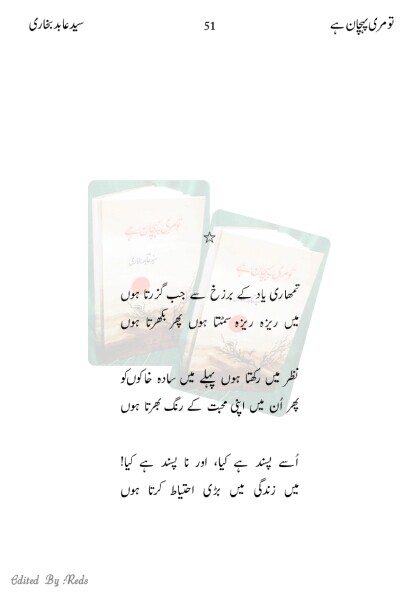 تو مری پہچان ہے 51 سید عابد بخاری
☆
تمھاری یاد کے برزخ سے جب گزرتا ہوں
میں ریزہ ریزہ سمٹتا ہوں پھر بکھرتا ہوں
نظر میں رکھتا ہوں پہلے میں سادہ خاکوں کو
پھر اُن میں اپنی محبت کے رنگ بھرتا ہوں
اُسے پسند ہے کیا، اور نا پسند ہے کیا!
میں زندگی میں بڑی احتیاط کرتا ہوں
تو مری پہچان ہے
تو مری پہچان ہے
Edited By Reds